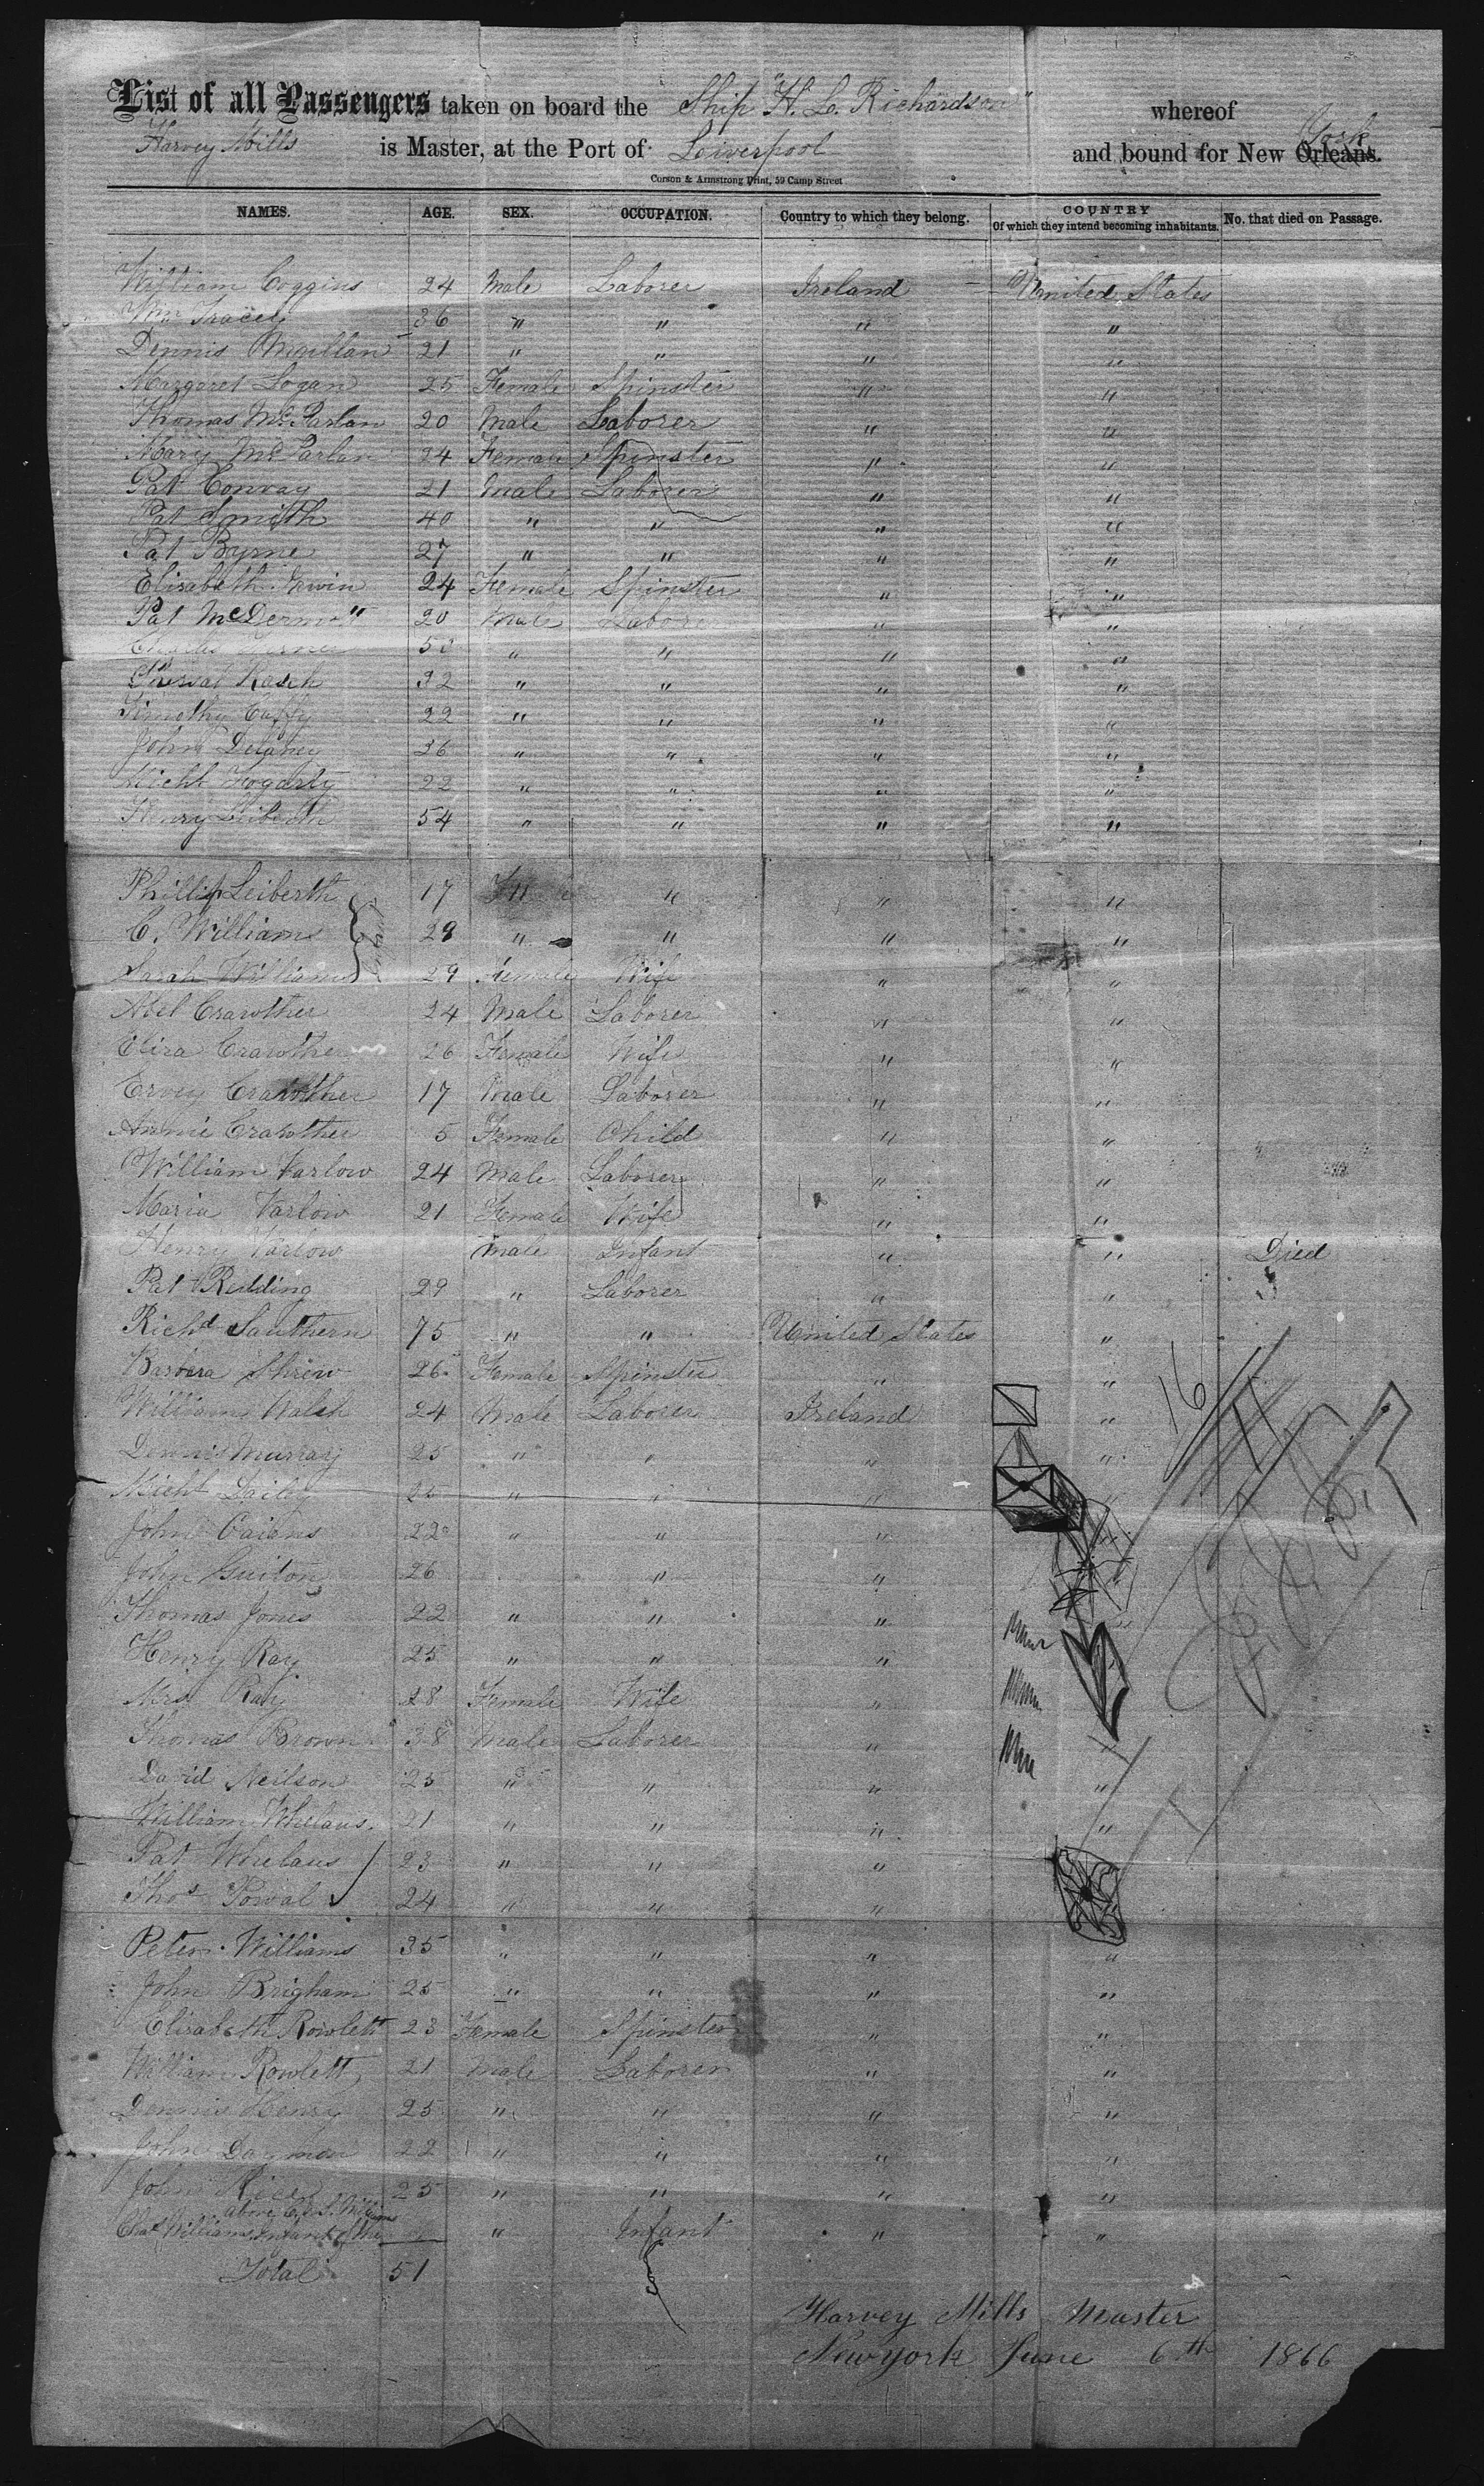 List of all Passengers taken on board the Ship "H. L. Richardson" whereof
Harvey Mills is Master, at the Port of Leiverpool and bound for New Orleans. York
Corson & Armstrong Print, 59 Camp Street
NAMES. AGE. SEX. OCCUPATION. Country to which they belong. COUNTRY Of which they intend becoming inhabitants. No. that died on Passage.
William Coggins 24 Male Laborer Ireland United States
Wm Tracey 36 " " " "
Dennis 21 " " " "
Margaret Logan 25 Female Spinster " "
Thomas McParlan 20 Male Laborer " "
Mary McParlan 24 Female Spinster " "
Pat Conway 21 Male Laborer " "
Pat Smith 40 " " " "
Pat Byrne 27 " " " "
Elisabeth Irwin 24 Female Spinster " "
Pat McDermo" 20 Male Labore " "
Charles 50 " " " "
32 " " " "
Timothy Caffy 22 " " " "
John Delaney 36 " " " "
Michl Fogarty 22 " " " "
Henry Leiberth 54 " " " "
Phillip Leiberth 17 " " " "
C. Williams 29 " " " "
Sarah Williams 29 Female Wife " "
Abel Crawther 24 Male Laborer " "
Elira Crawther 26 Female Wife " "
Ervey Crawther 17 Male Laborer " "
Annie Crawther 5 Female Child " "
William Varlow 24 Male Laborer " "
Maria Varlow 21 Female Wife " "
Henry Varlow Male Infant " " Died
Pat Redding 29 " Laborer " "
Richd Southern 75 " " United States "
Barbera Shriw 26 Female Spinster " "
William Walsh 24 Male Laborer Ireland "
16
Dennis Murray 25 " " " "
Michl Daily 25 " " " "
John Cairns 22 " " " "
John Guiton 26 " "
Thomas Jones 22 " " " "
Henry Ray 25 " " "
Mrs Ray 28 Female Wife "
Thomas Brown 38 Male Laborer " "
David Neilson 25 " " " "
William Whelans 21 " " " "
Pat Whelans 23 " " "
Thos Powal 24 " " "
Peter Williams 35 " " " "
John Brigham 25 " " " "
Elisabeth Rowlett 23 Female Spinster " "
William Rowlett 21 Male Laborer " "
Dennis Henry 25 " " " "
John Dayman 22 " " " "
John Rice 25 " " " "
above C. & S. Williams
Chas Williams Infant of the " Infant " "
Total 51
Harvey Mills Master
New york June 6th 1866